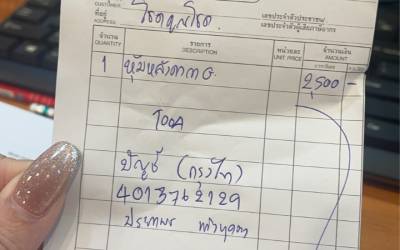 CUSTOMER
ที่อยู่
ADDRESS
เลขประจำตัวประชาชน/
เลขประจำตัวผู้เสียภาษีอากร
จำนวน รายการ หน่วยละ จำนวนเงิน
QUANTITY DESCRIPTION UNIT PRICE AMOUNT
1 หุ้มหลังคา 2,500 -
TOOA
บัญชี (กรุงไทย)
4013762129